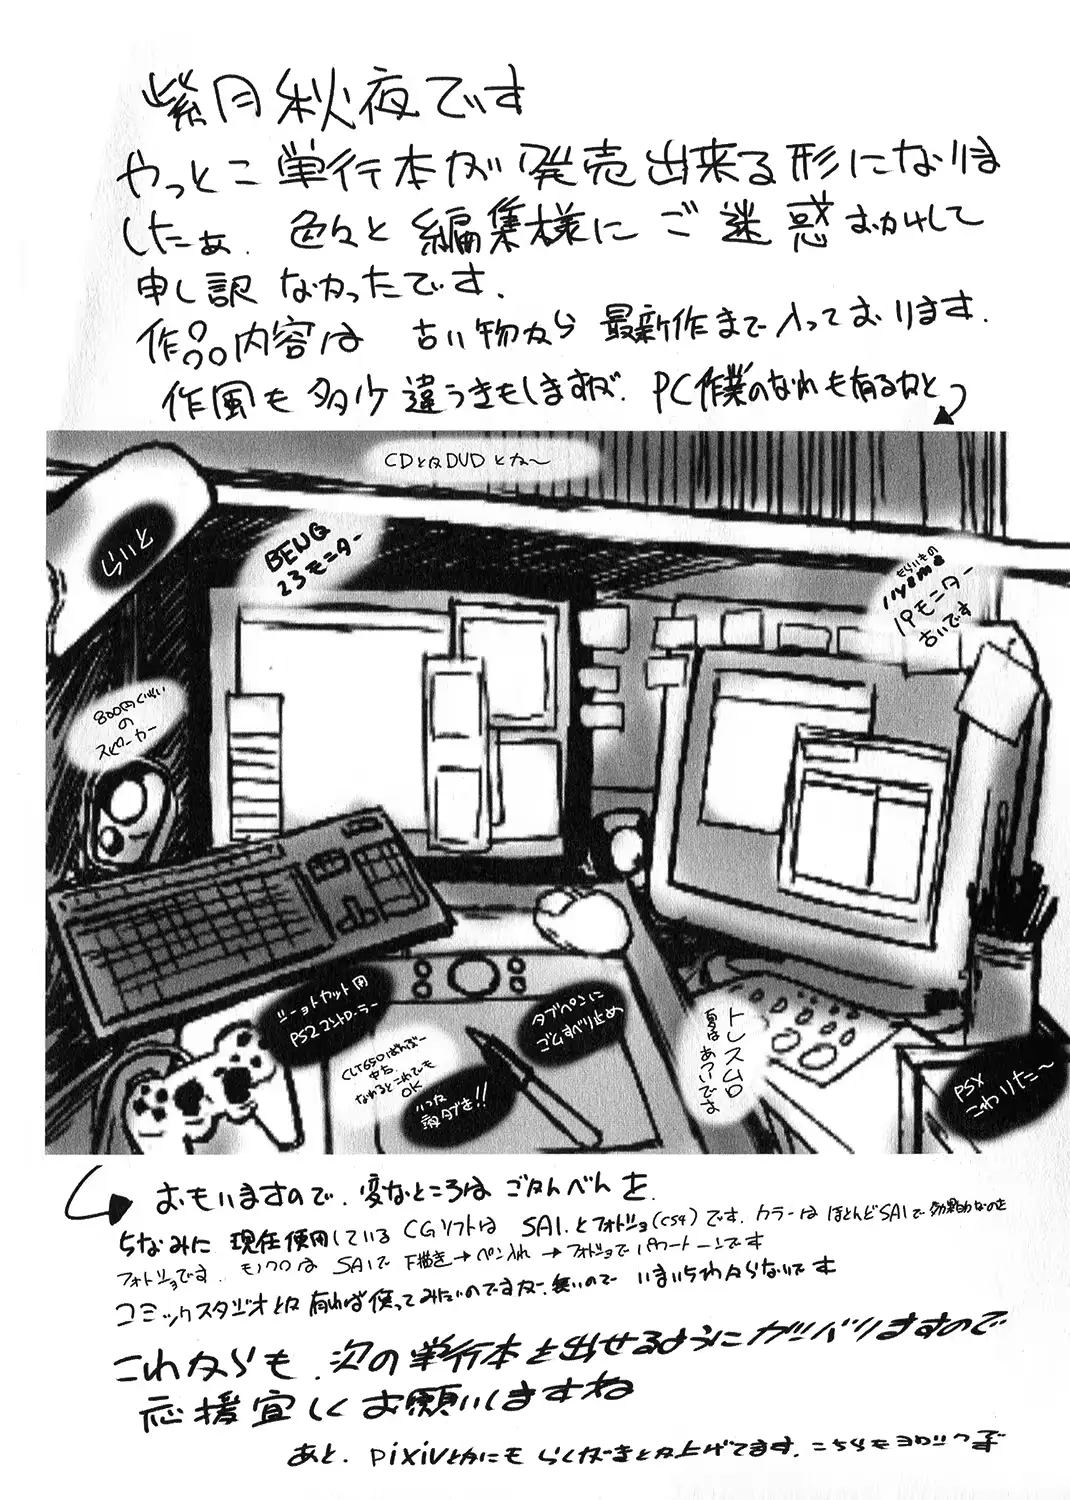 紫月秋夜です
やっとこ単行本が発売出来る形になりま
したぁ. 色々と編集様にご迷惑おかけして
申し訳なかったです.
作品内容は 古い物から 最新作まで入っております.
作風も多少違うきもしますが. PC作業のなれも有るかと
CDとかDVDとか〜
らいと
BENQ
23モニター
もらいもの
iiyama
19モニター
古いです
800円くらい
の
スピーカー
ショートカット用
PS2コントローラー
タブペンに
ゴムすべり止め
トレス台
夏は
あついです
なれるとこれでも
OK
PSX
こわりた〜
おもいますので. 変なところはごかんべんを.
ちなみに 現在使用しているCGソフトは SAI.とフォトショ(CS4)です. カラーは ほとんどSAIで効果かなのを
フォトショです. モノクロは SAIで下描き→ペン入れ→フォトショでパワートーンです
コミックスタジオとか有れば使ってみたいのですが. 無いので いまいちわからないです
これからも. 次の単行本を出せるようにガンバリますので
応援宜しくお願いしますね
あと. pixivとかにも らくがきとか上げてます. こちらもヨロシクっす